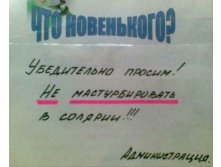 ЧТО НОВЕНЬКОГО?
УБЕДИТЕЛЬНО ПРОСИМ!
НЕ МАСТУРБИРОВАТЬ
В СОЛЯРИИ!!!
АДМИНИСТРАЦИЯ.